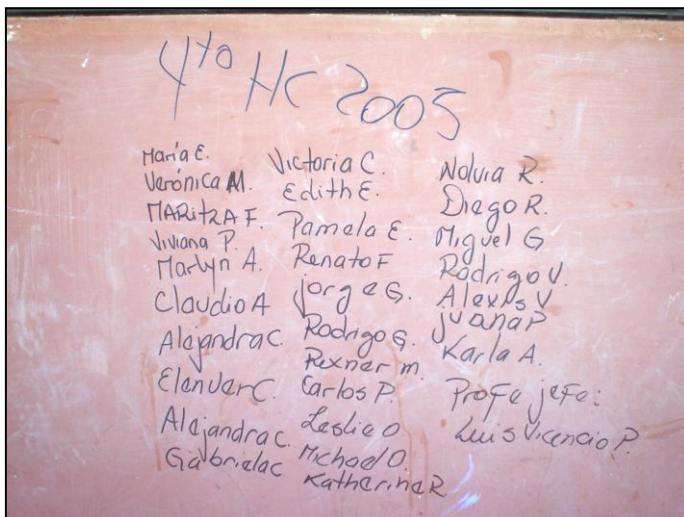 4to HC 2005
María E.
Verónica M.
MARitzA F.
Viviana P.
Marlyn A.
Claudio A
Alejandra C.
Elenver C.
Alejandra C.
Gabriela C
Victoria C.
Edith E.
Pamela E.
Renato F
jorge G.
Rodrigo G.
Rexner m.
Carlos P.
Leslie O
Michael O.
Katherine R
Nolvia R.
Diego R.
Miguel G
Rodrigo V.
Alexis V
juana P
Karla A.
Profe jefe:
Luis Vicencio P.